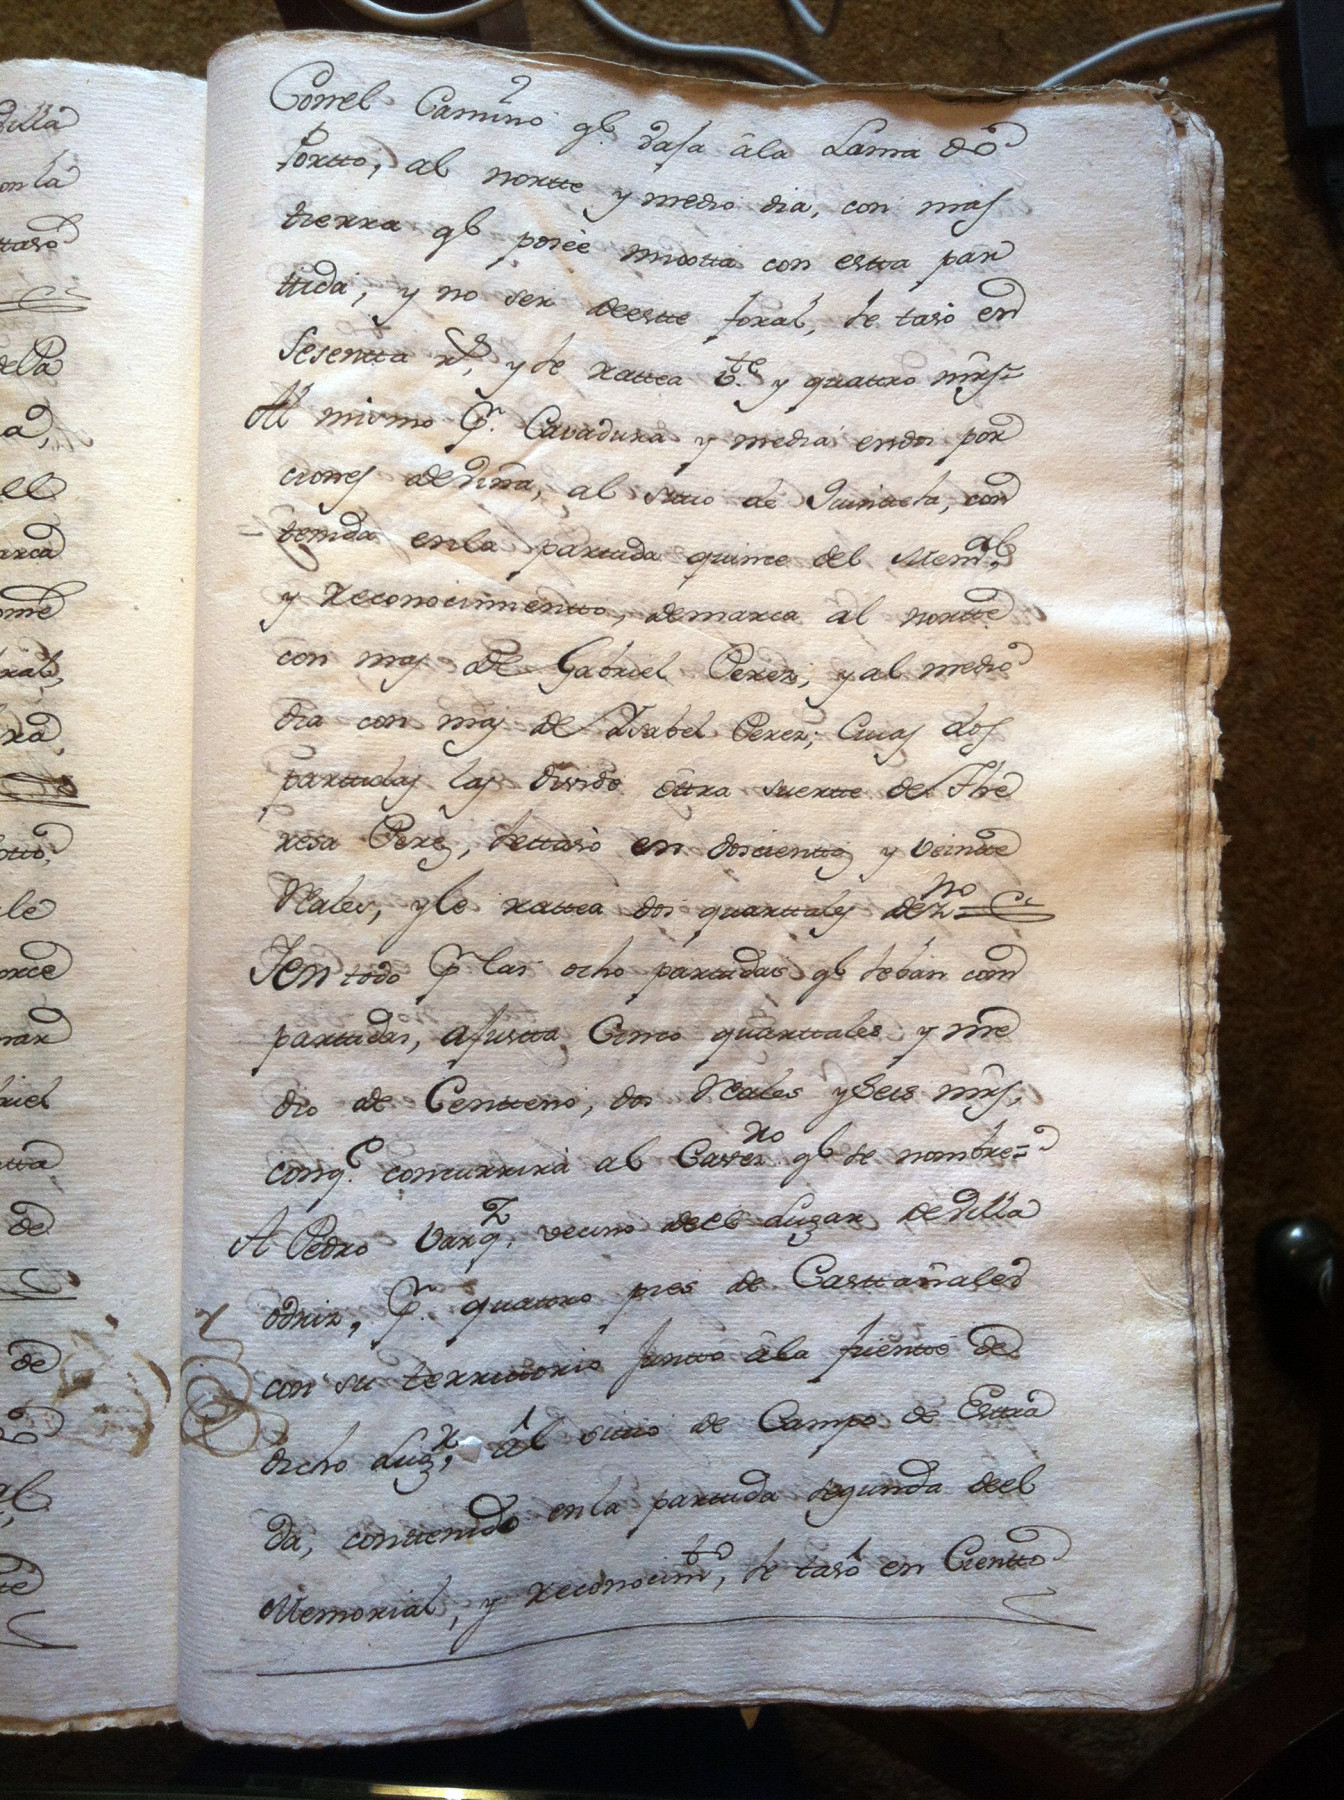 Conel Camino q.e vasa âla Lama dô
Portto, al nortte y medio dia, con mas
tierra q.e posèe mixtta con estta par
ttida, y no ser deestte foral, se tasò en
Sesentta r.s, y le rattea v.te y quattro mrs=
Al mismo p.r Cavadura y media endos por
ciones de viña, al sitio de Quintela, con
tenida enla partida quince del Mem.l
y reconocimientto, demarca al nortte
con mas de Gabriel Perez, y al medio
dia con mas de Ysabel Perez, Cuias dos
partidas las divide ôttra suertte de The
resa Perez, settasò en doscientos y veintte
Reales, y le rattea dos quarttales de vno=
Yen todo p.r las ocho partidas q.e seban com
partidas, ajustta Cinco quarttales y me
dio de Centteno, dos Reales y seis mrs,
conq.e concurrirà al Casero q.e se nombre=
A Pedro Varq.z, vecino deel Lugar de Villa
odriz, p.r quattro pies de Casttañales
con su territtorio juntto âla fuentte de
dicho Lug.r, al sittio de Campo de Esttra
da, conttenido enla partida segunda deel
Memorial, y reconocim.to, se tasò en Cientto
villa
onla
ttasò
dela
a,
el
arca
ome
ral,
ra
otto,
le
orce
mar
riel
tta
de
de
al
te